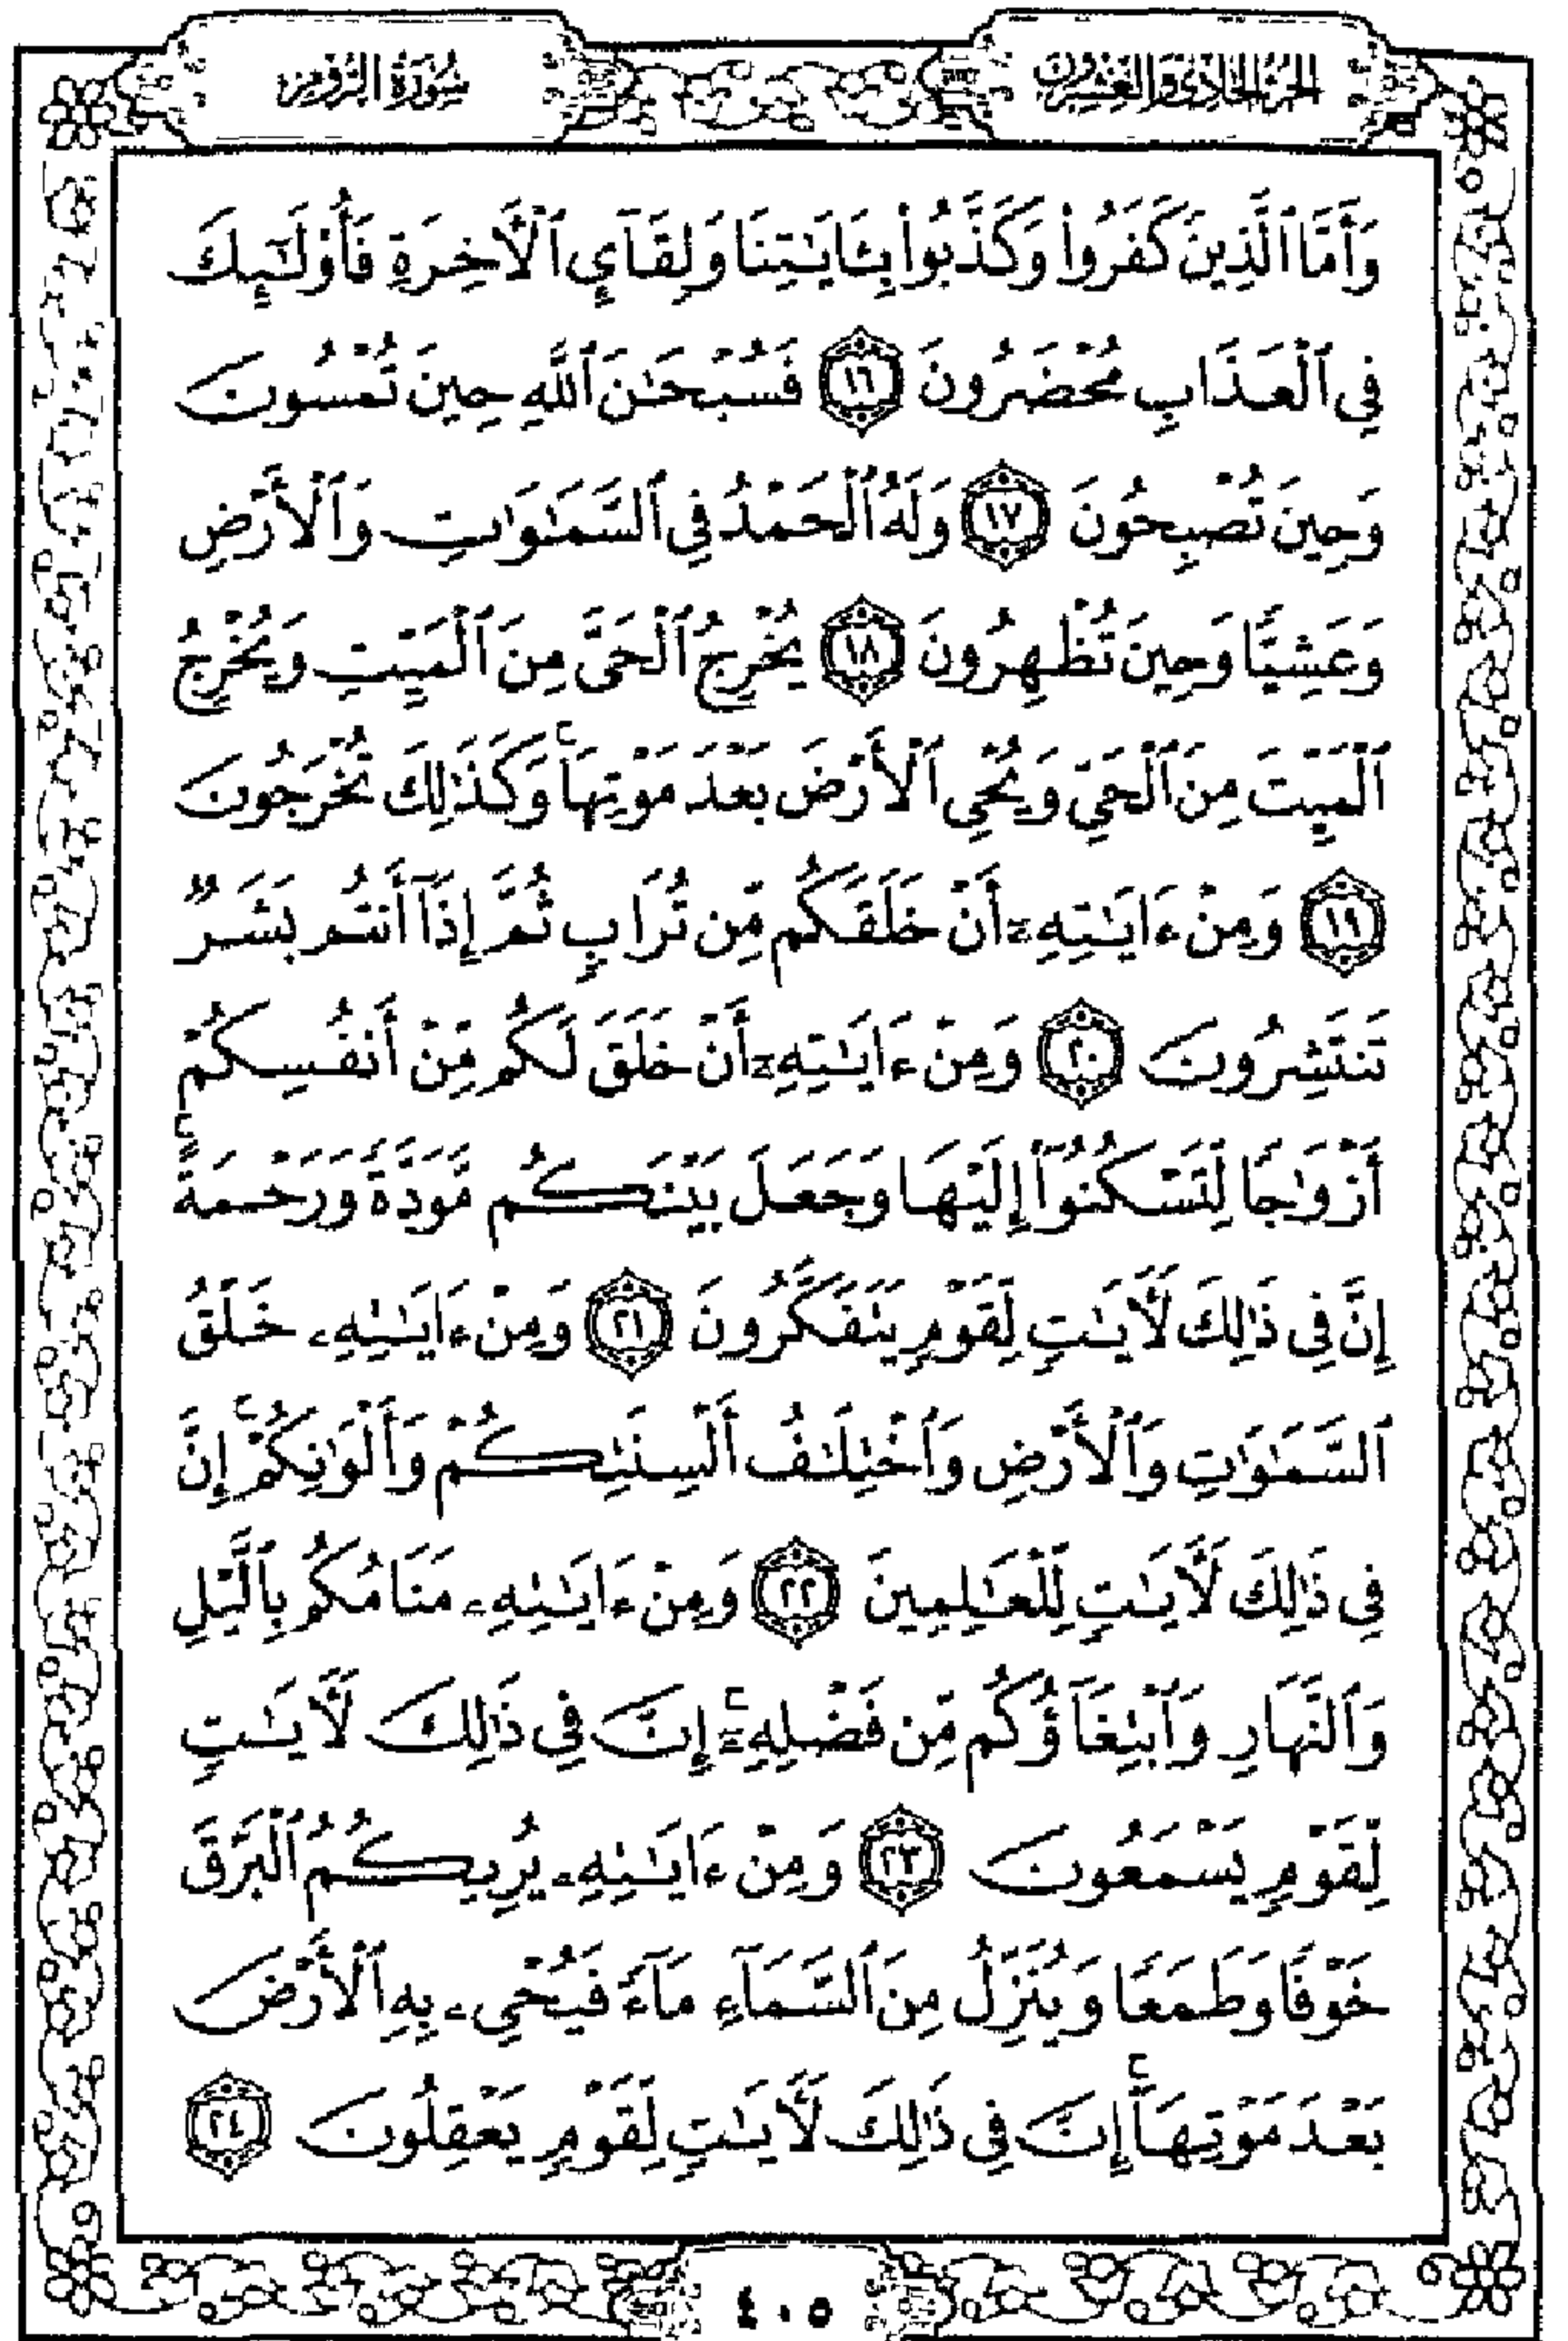 الجزء الحادي والعشرون
سورة الروم
وَأَمَّا ٱلَّذِينَ كَفَرُوا۟ وَكَذَّبُوا۟ بِـَٔايَـٰتِنَا وَلِقَآئِ ٱلْـَٔاخِرَةِ فَأُو۟لَـٰٓئِكَ
فِى ٱلْعَذَابِ مُحْضَرُونَ ١٦ فَسُبْحَـٰنَ ٱللَّهِ حِينَ تُمْسُونَ
وَحِينَ تُصْبِحُونَ ١٧ وَلَهُ ٱلْحَمْدُ فِى ٱلسَّمَـٰوَٰتِ وَٱلْأَرْضِ
وَعَشِيًّا وَحِينَ تُظْهِرُونَ ١٨ يُخْرِجُ ٱلْحَىَّ مِنَ ٱلْمَيِّتِ وَيُخْرِجُ
ٱلْمَيِّتَ مِنَ ٱلْحَىِّ وَيُحْىِ ٱلْأَرْضَ بَعْدَ مَوْتِهَا ۚ وَكَذَٰلِكَ تُخْرَجُونَ
١٩ وَمِنْ ءَايَـٰتِهِۦٓ أَنْ خَلَقَكُم مِّن تُرَابٍ ثُمَّ إِذَآ أَنتُم بَشَرٌ
تَنتَشِرُونَ ٢٠ وَمِنْ ءَايَـٰتِهِۦٓ أَنْ خَلَقَ لَكُم مِّنْ أَنفُسِكُمْ
أَزْوَٰجًا لِّتَسْكُنُوٓا۟ إِلَيْهَا وَجَعَلَ بَيْنَكُم مَّوَدَّةً وَرَحْمَةً ۚ
إِنَّ فِى ذَٰلِكَ لَـَٔايَـٰتٍ لِّقَوْمٍ يَتَفَكَّرُونَ ٢١ وَمِنْ ءَايَـٰتِهِۦ خَلْقُ
ٱلسَّمَـٰوَٰتِ وَٱلْأَرْضِ وَٱخْتِلَـٰفُ أَلْسِنَتِكُمْ وَأَلْوَٰنِكُمْ ۚ إِنَّ
فِى ذَٰلِكَ لَـَٔايَـٰتٍ لِّلْعَـٰلِمِينَ ٢٢ وَمِنْ ءَايَـٰتِهِۦ مَنَامُكُم بِٱلَّيْلِ
وَٱلنَّهَارِ وَٱبْتِغَآؤُكُم مِّن فَضْلِهِۦٓ ۚ إِنَّ فِى ذَٰلِكَ لَـَٔايَـٰتٍ
لِّقَوْمٍ يَسْمَعُونَ ٢٣ وَمِنْ ءَايَـٰتِهِۦ يُرِيكُمُ ٱلْبَرْقَ
خَوْفًا وَطَمَعًا وَيُنَزِّلُ مِنَ ٱلسَّمَآءِ مَآءً فَيُحْىِۦ بِهِ ٱلْأَرْضَ
بَعْدَ مَوْتِهَآ ۚ إِنَّ فِى ذَٰلِكَ لَـَٔايَـٰتٍ لِّقَوْمٍ يَعْقِلُونَ ٢٤
٤٠٥